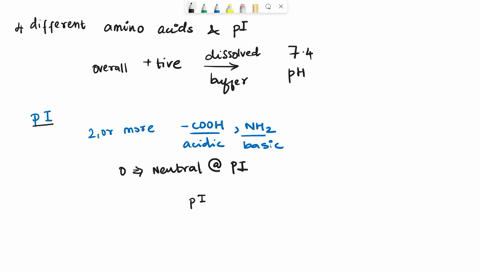 4 different amino acids & pI
overall +tive dissolved 7.4
buffer pH
pI
2, or more -COOH, NH2
acidic basic
0 ⇒ Neutral @ pI
pI